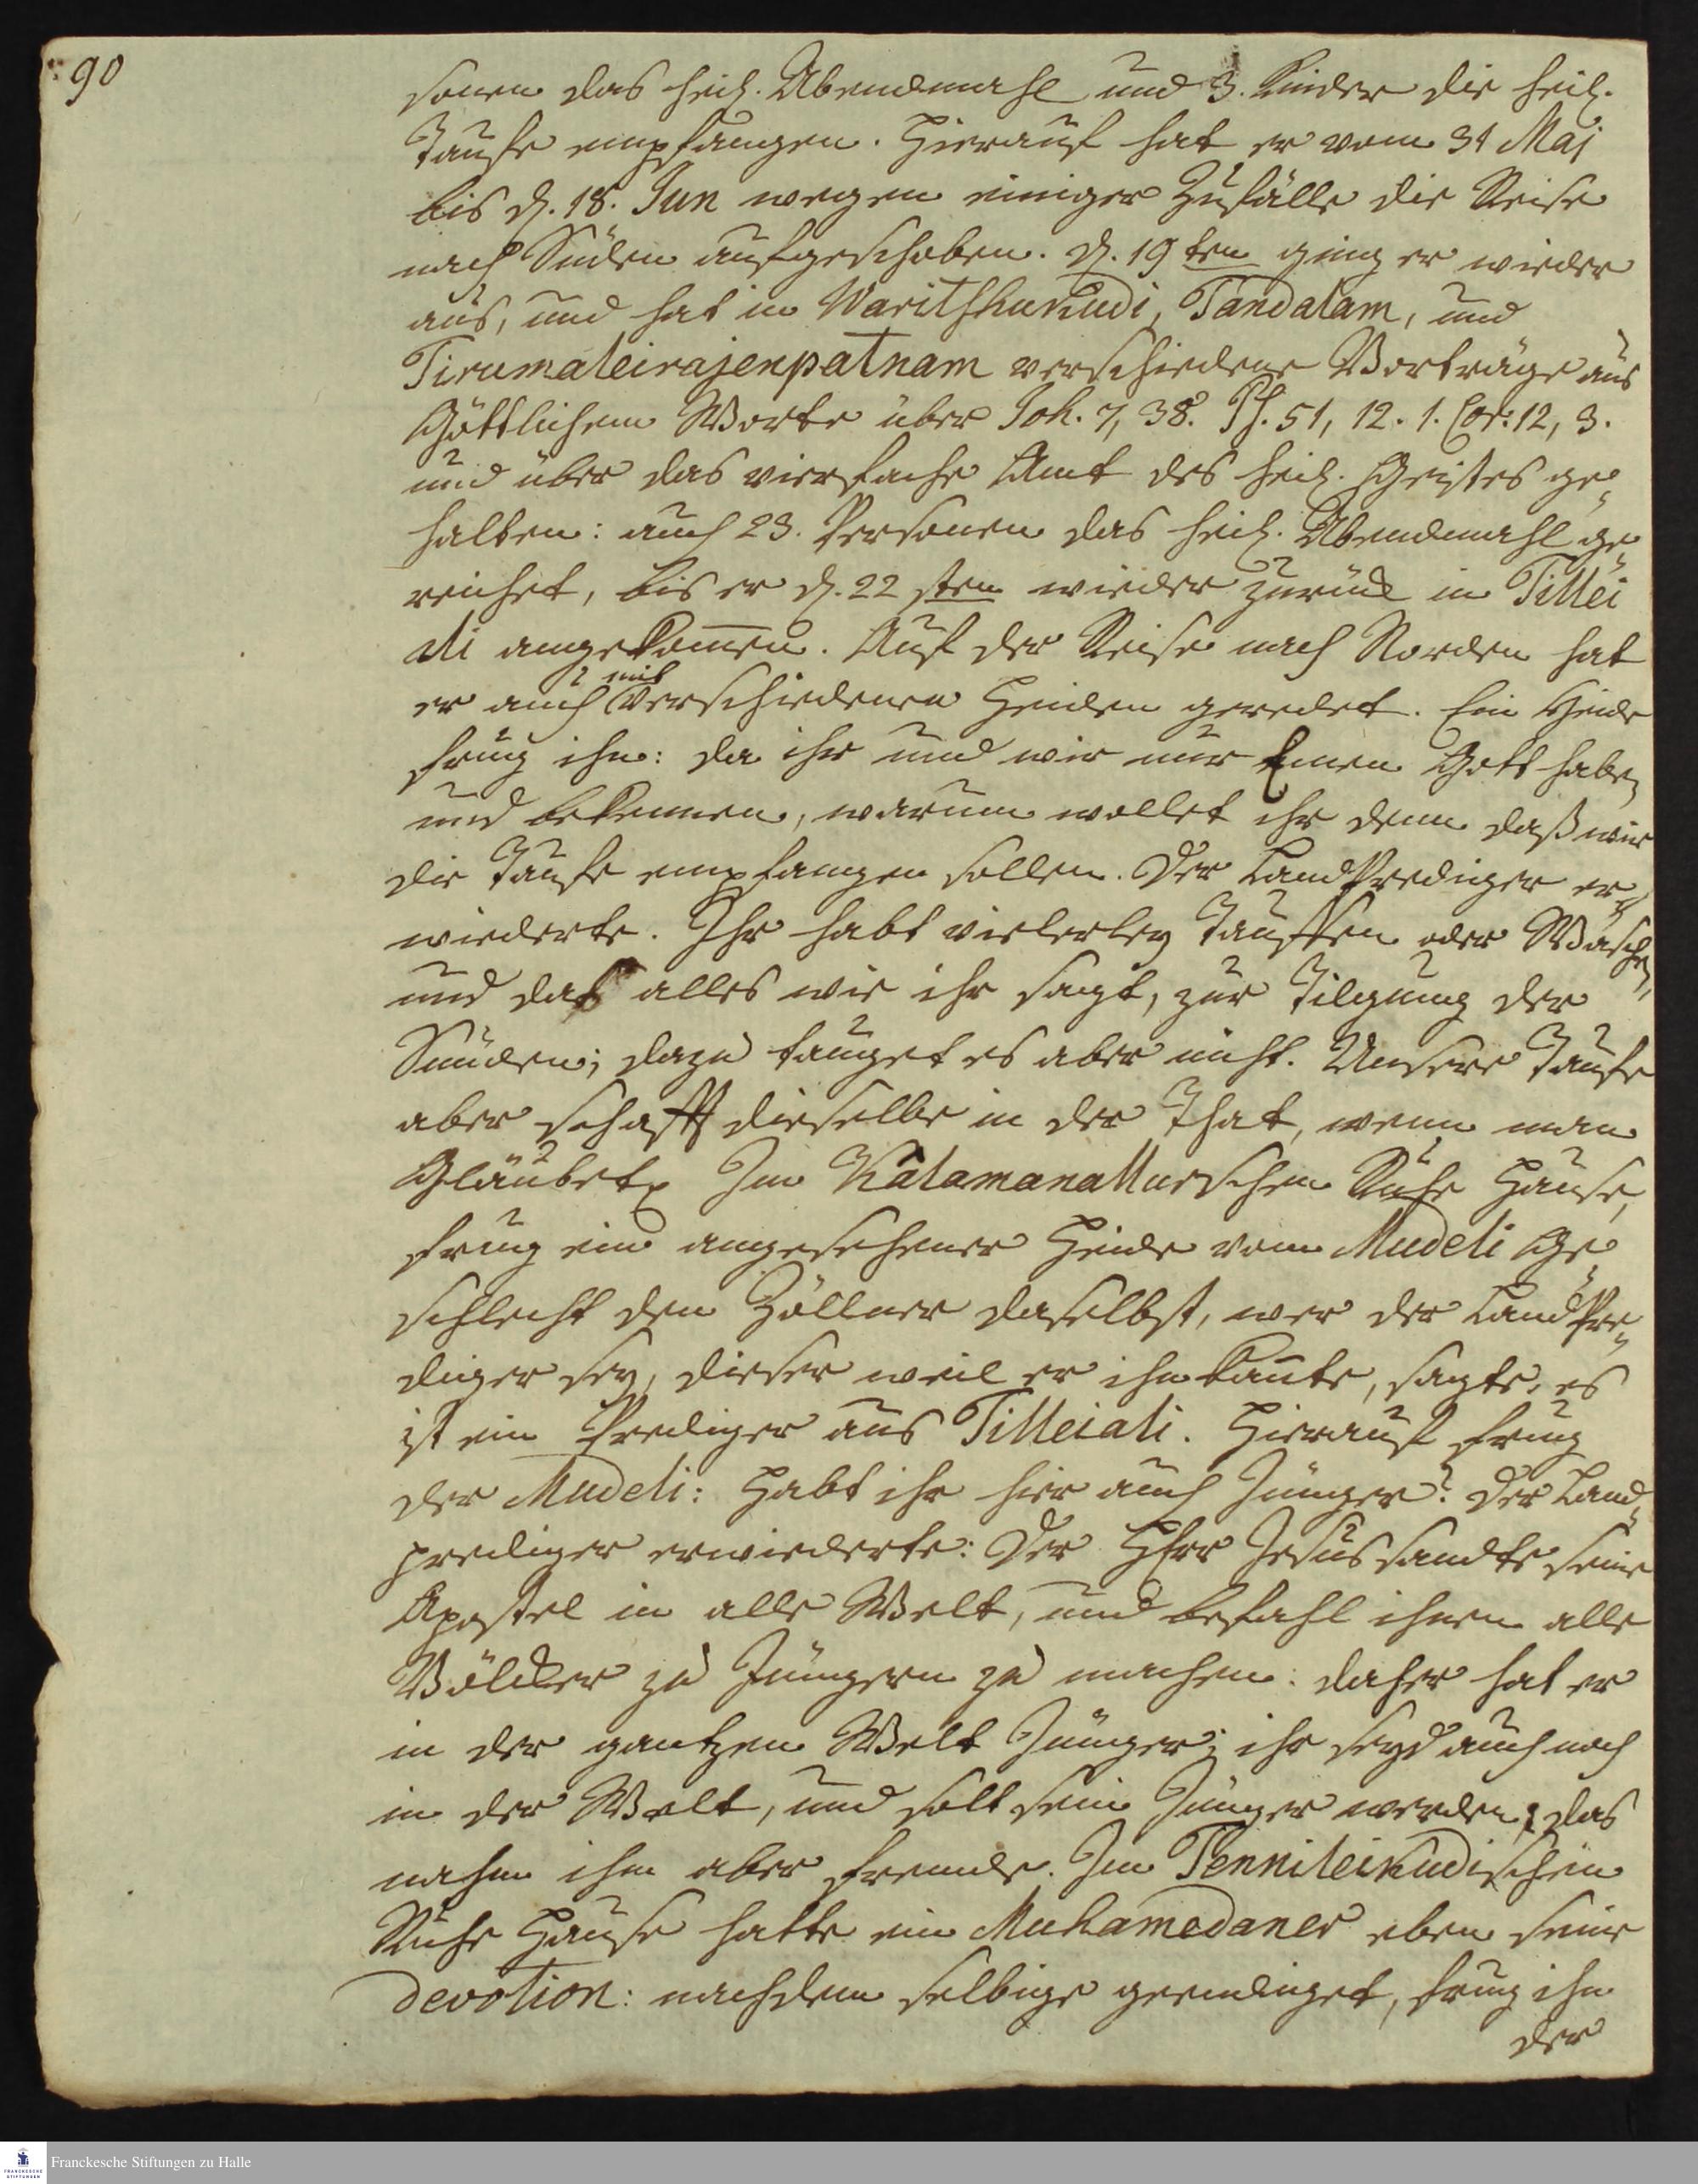 90
sonen das heil. Abendmahl und 3. Kinder die heil.
Taufe empfangen. Hierauf hat er vom 31 Maj
bis d. 18. Jun wegen einiger Zufälle die Reise
nach Süden aufgeschoben. d. 19 ten ging er wieder
aus, und hat in Waritshukudi, Tandalam, und
Tirumaleirajenpatnam verschiedene Vorträge aus
Göttlichem Worte über Joh. 7, 38. Ps. 51, 12. 1. Cor: 12, 3.
und über das vierfache Amt des heil. Geistes ge„
halten: auch 23. Personen das heil. Abendmahl ge„
reichet, bis er d. 22 sten wieder zurück in Tillei
ali angekom̄en. Auf der Reise nach Norden hat
er auch mit verschiedenen Heiden geredet. Ein Heide
frug ihn: da ihr und wir nur Einen Gott haben
und bekennen, warum wollet ihr denn daß wir
die Taufe empfangen sollen. Der LandPrediger er„
wiederte. Ihr habt vielerley Tauffen oder Waschen,
und das alles wie ihr sagt, zur Tilgung der
Sünden; dazu tauget es aber nicht. Unsere Taufe
aber schafft dieselbe in der That, wenn man
Gläubet. Im Kalamanallurschen Ruhe Hause,
frug ein angesehener Heide vom Mudeli Ge„
schlecht den Zöllner daselbst, wer der LandPre„
diger sey, dieser weil er ihn kan̄te, sagte, es
ist ein Prediger aus Tilleiali. Hierauf frug
der Mudeli: Habt ihr hier auch Jünger? Der Land„
prediger erwiederte: Der HErr Jesus sandte seine
Apostel in alle Welt, und befahl ihnen alle
Völcker zu Jüngern zu machen: daher hat er
in der gantzen Welt Jünger; ihr seyd auch noch
in der Welt, und solt sein Jünger werden; das
nahm ihn aber fremde. Im Tennileikudischen
Ruhe Hause hatte ein Muhamedaner eben seine
devotion: nachdem selbige geendiget, frug ihn
der
Franckesche Stiftungen zu Halle